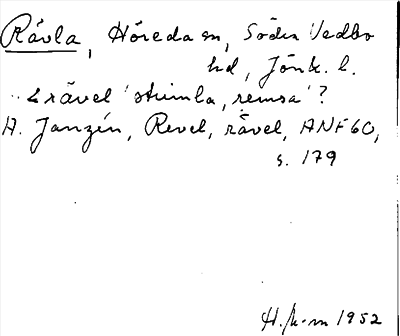 Rävla, Höreda sn, Södra Vedbo
hd, Jönk. l.
< rävel 'strimla, remsa'?
A. Janzén, Revel, rävel, ANF 60,
s. 179
1952